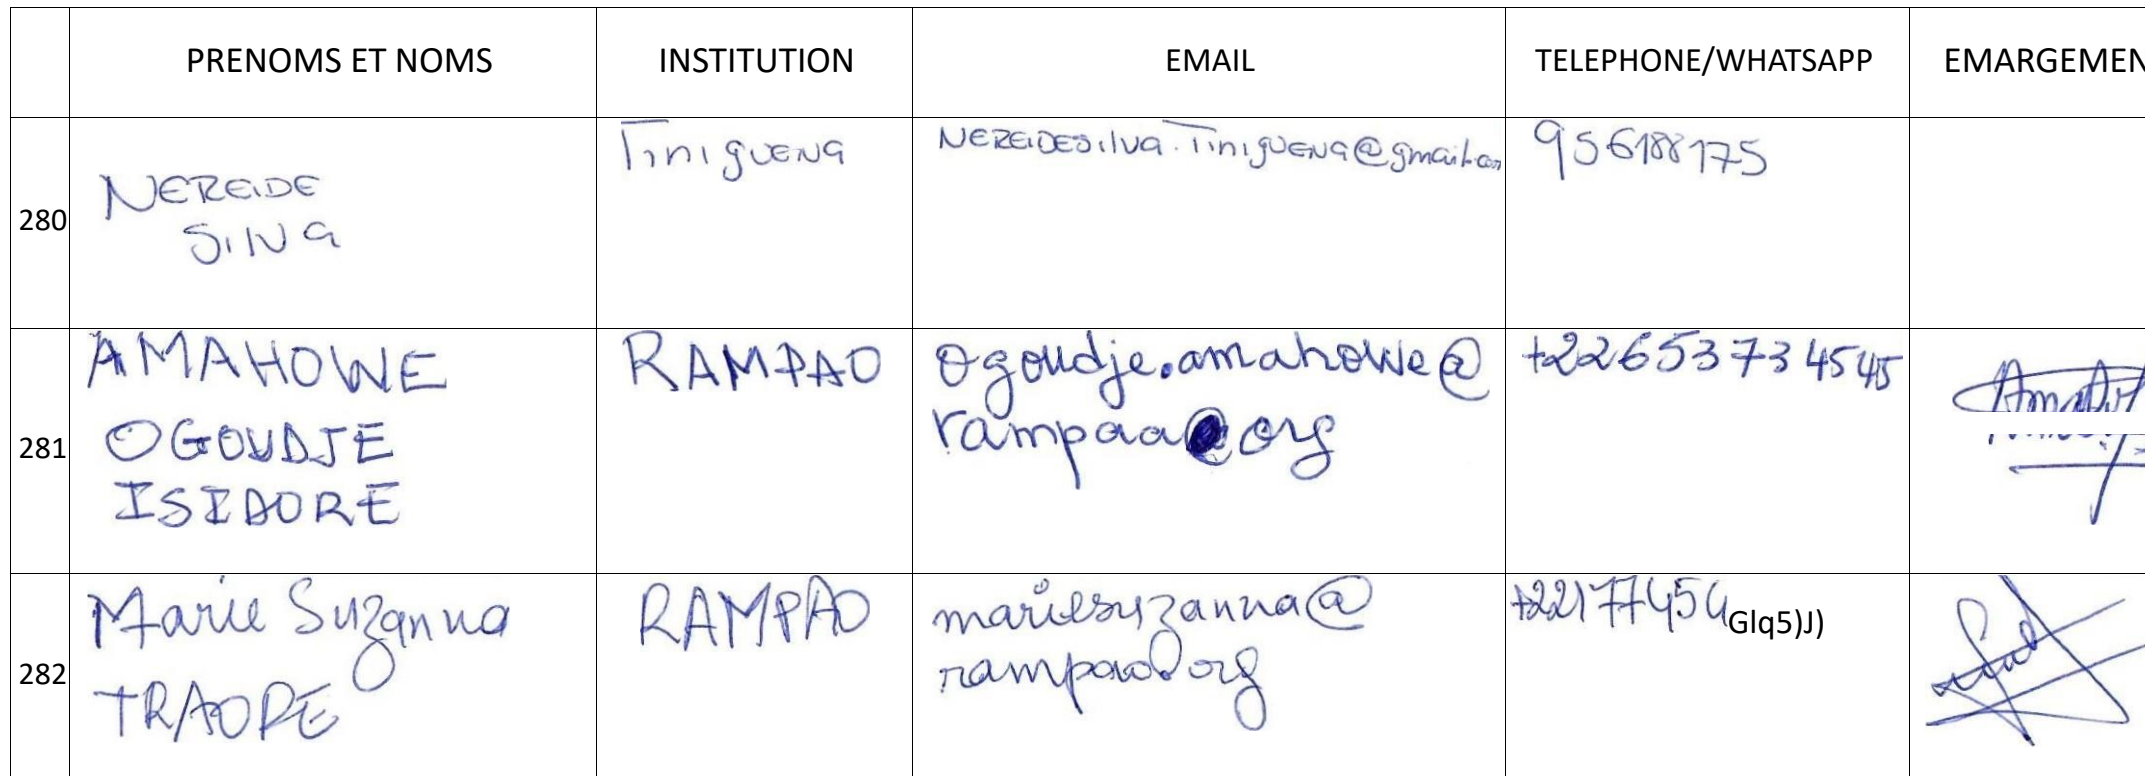 PRENOMS ET NOMS INSTITUTION EMAIL TELEPHONE/WHATSAPP EMARGEMEN
280 NEREIDE SILVA Tiniguena NEREIDESilva.Tiniguena@gmail.com 956188175
281 AMAHOWE OGOUDJE ISIDORE RAMPAO Ogoudje.amahowe@ rampao.org +2265373 4545
282 Marie Suzanna TRAORE RAMPAO mariesuzanna@ rampao.org +22177454Glq5)J)